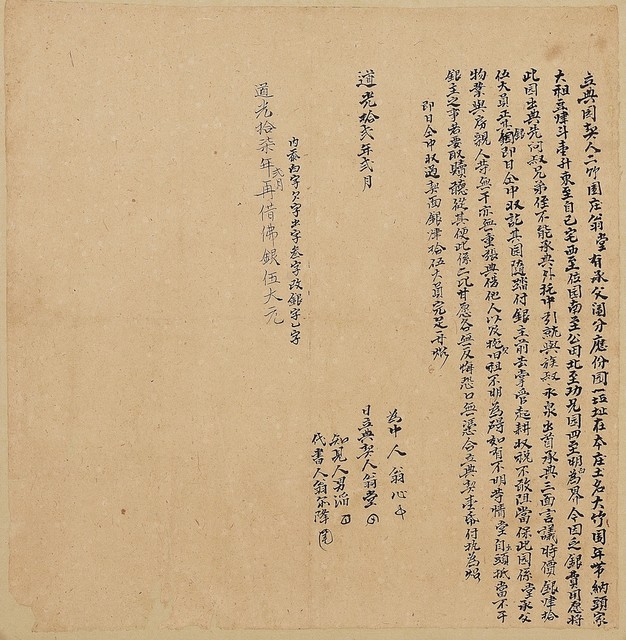 立典園契人二竹園庄翁堂有承父鬮分應份園一坵址在本庄土名大竹園年帶納頭家
大租豆肆斗壹升東至自己宅西至位園南至公田北至功兄園四至明白為界今因乏銀費用應將
此園出典先問叔兄弟侄不能承典外托中引就與族叔永泉出首承典三面言議時價銀肆拾
伍大員正其銀即日仝中收訖其園隨踏付銀主前去掌管起耕收稅不敢阻當保此園係堂承父
物業與房親人等無干亦無重張典掛他人以及拖欠旧租不明為碍如有不明等情堂自出頭抵當不干
銀主之事若要取贖聽從其便此係二比甘愿各無反悔恐口無憑合立典契壹紙付执為炤
即日仝中收過契面銀肆拾伍大員完足再炤
為中人翁心
日立典契人翁堂
知見人男添
代書人翁尔降
道光拾弍年弍月
內添內字欠字出字叁字改銀字乙字
道光拾柒年弍月再借佛銀伍大元